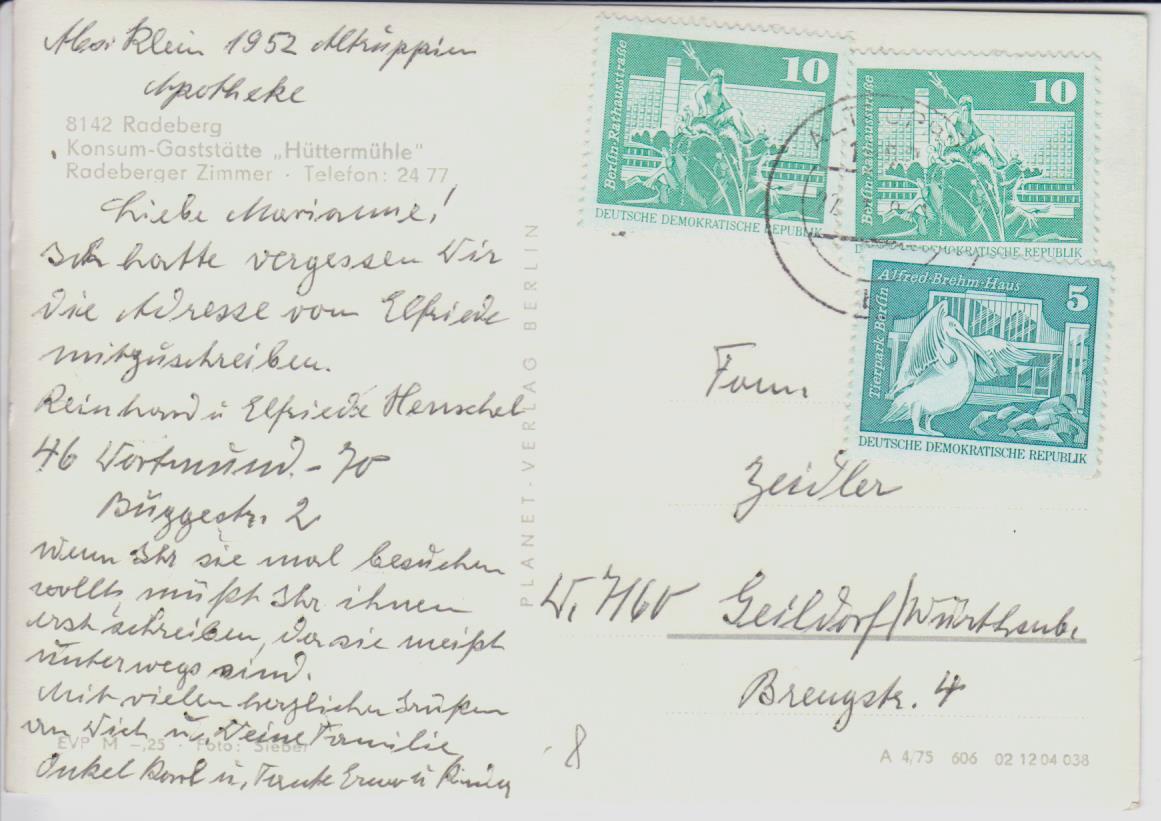 Abs. Klein 1952 Altruppin
Apotheke
8142 Radeberg
Konsum-Gaststätte „Hüttermühle"
Radeberger Zimmer · Telefon: 24 77
Liebe Marianne!
Ich hatte vergessen Dir
die Adresse von Elfriede
mitzuschreiben.
Reinhard u Elfriede Henschel
46 Dortmund - 70
Buggestr. 2
Wenn Ihr sie mal besuchen
wollts müßt Ihr ihnen
erst schreiben, da sie meißt
unterwegs sind.
Mit vielen herzlichen Grüßen
an Dich u, Deine Familie
Onkel Karl u, Tante Erna u Kinder
EVP M –,25 · Foto: Sieber
PLANET-VERLAG BERLIN
Berlin·Rathausstraße
10
DEUTSCHE DEMOKRATISCHE REPUBLIK
Berlin·Rathausstraße
10
DEUTSCHE DEMOKRATISCHE REPUBLIK
Tierpark Berlin
Alfred-Brehm-Haus
5
DEUTSCHE DEMOKRATISCHE REPUBLIK
Fam.
Zeidler
W, 7160 Geildorf/Württenb.
Brengstr. 4
8
A 4/75 606 02 12 04 038